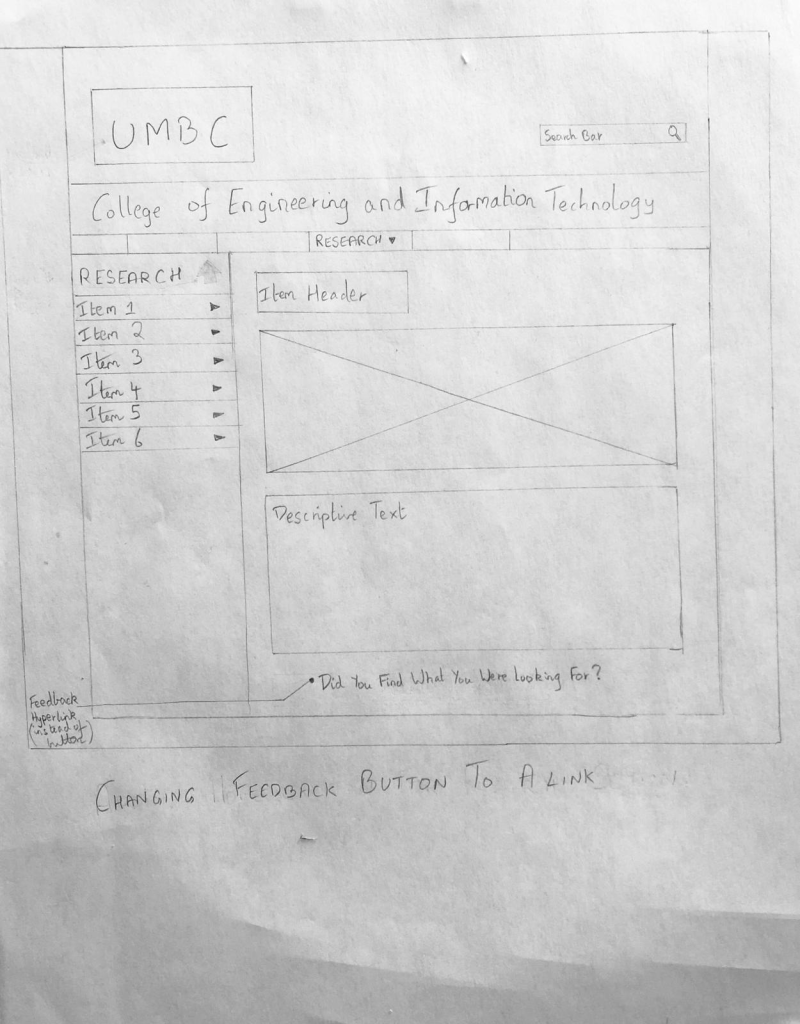 UMBC
Search Bar
College of Engineering and Information Technology
RESEARCH
RESEARCH
Item 1
Item 2
Item 3
Item 4
Item 5
Item 6
Item Header
Descriptive Text
Did You Find What You Were Looking For?
Feedback
Hyperlink
(instead of
button)
CHANGING FEEDBACK BUTTON TO A LINK